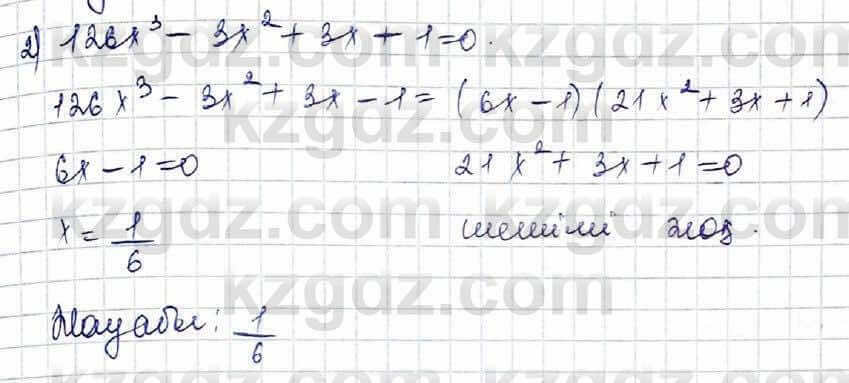 2) 126x³ − 3x² + 3x + 1 = 0.
126x³ − 3x² + 3x − 1 = (6x − 1)(21x² + 3x + 1)
6x − 1 = 0 21x² + 3x + 1 = 0
x = 1/6 шешімі жоқ.
Жауабы: 1/6
kzgdz.com
kzgdz.com
kzgdz.com
kzgdz.com
kzgdz.com
kzgdz.com